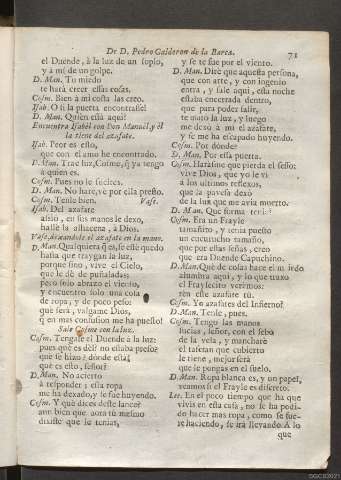 De D. Pedro Calderon de la Barca.
71
el Duende, à la luz de un soplo,
y à mi de un golpe.
D. Man. Tu miedo
te hará creer essas cosas.
Cosm. Bien à mi costa las creo.
Isab. O si la puerta encontrasse!
D. Man. Quien està aqui?
Encuentra Isabèl con Don Manuel, y èl
la tiene del azafate.
Isab. Peor es esto,
que con el amo he encontrado.
D. Man. Trae luz, Cosme, q̃ ya tengo
à quien es.
Cosm. Pues no le sueltes.
D. Man. No harè, vè por ella presto.
Cosm. Tenle bien. Vase.
Isab. Del azafate
assio, en sus manos le dexo,
hallè la alhacena, à Dios.
Vase, dexandole el azafate en la mano.
D. Man. Qualquiera q̃ es, se estè quedo
hasta que traygan la luz,
porque sino, vive el Cielo,
que le dè de puñaladas;
pero solo abrazo el viento,
y encuentro solo una cosa
de ropa, y de poco peso:
què serà, valgame Dios,
q̃ en mas confusion me ha puesto!
Sale Cosme con la luz.
Cosm. Tengase el Duende à la luz:
pues què es dèl? no estaba preso?
què se hizo? donde està?
què es esto, señor?
D. Man. No acierto
à responder; esta ropa
me ha dexado, y se fue huyendo.
Cosm. Y què dices deste lance?
aun bien que aora tu mesmo
dixiste que le tenias,
y se te fue por el viento.
D. Man. Dirè que aquesta persona,
que con arte, y con ingenio
entra, y sale aqui, esta noche
estaba encerrada dentro,
que para poder salir,
te matò la luz, y luego
me dexò à mi el azafate,
y se me ha escapado huyendo.
Cosm. Por donde?
D. Man. Por essa puerta.
Cosm. Harásme que pierda el sesso:
vive Dios, que yo le vi
à los ultimos reflexos,
que la pavesa dexò
de la luz que me avia muerto.
D. Man. Que forma tenia?
Cosm. Era un Frayle
tamañito, y tenia puesto
un cucurucho tamaño,
que por estas señas, creo
que era Duende Capuchino.
D. Man. Què de cosas hace el miedo!
alumbra aqui, y lo que traxo
el Fraylecito veremos:
ten este azafate tù.
Cosm. Yo azafates del Infierno?
D. Man. Tenle, pues.
Cosm. Tengo las manos
sucias, señor, con el sebo
de la vela, y mancharè
el tafetan que cubierto
le tiene, mejor serà
que le pongas en el suelo.
D. Man. Ropa blanca es, y un papel,
veamos si el Frayle es discreto.
Lee. En el poco tiempo que ha que
vivis en esta casa, no se ha podi-
do hacer mas ropa, como se fue-
re haciendo, se irà llevando. A lo
que